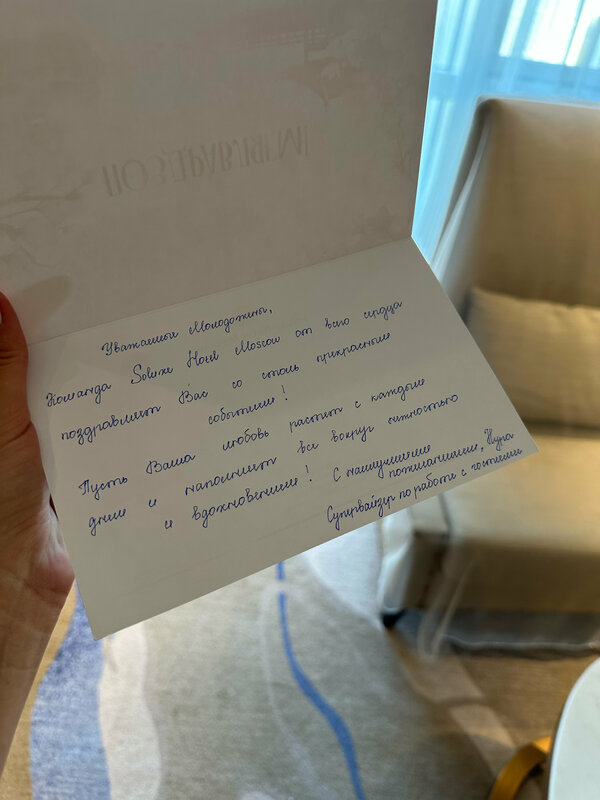 ПОЗДРАВЛЯЕМ!
Уважаемые Молодожены,
Команда Soluxe Hotel Moscow от всего сердца
поздравляет Вас со столь прекрасным
событием!
Пусть Ваша любовь растет с каждым
днем и наполняет все вокруг нежностью
и вдохновением! С наилучшими
пожеланиями, Нура
Супервайзер по работе с гостями